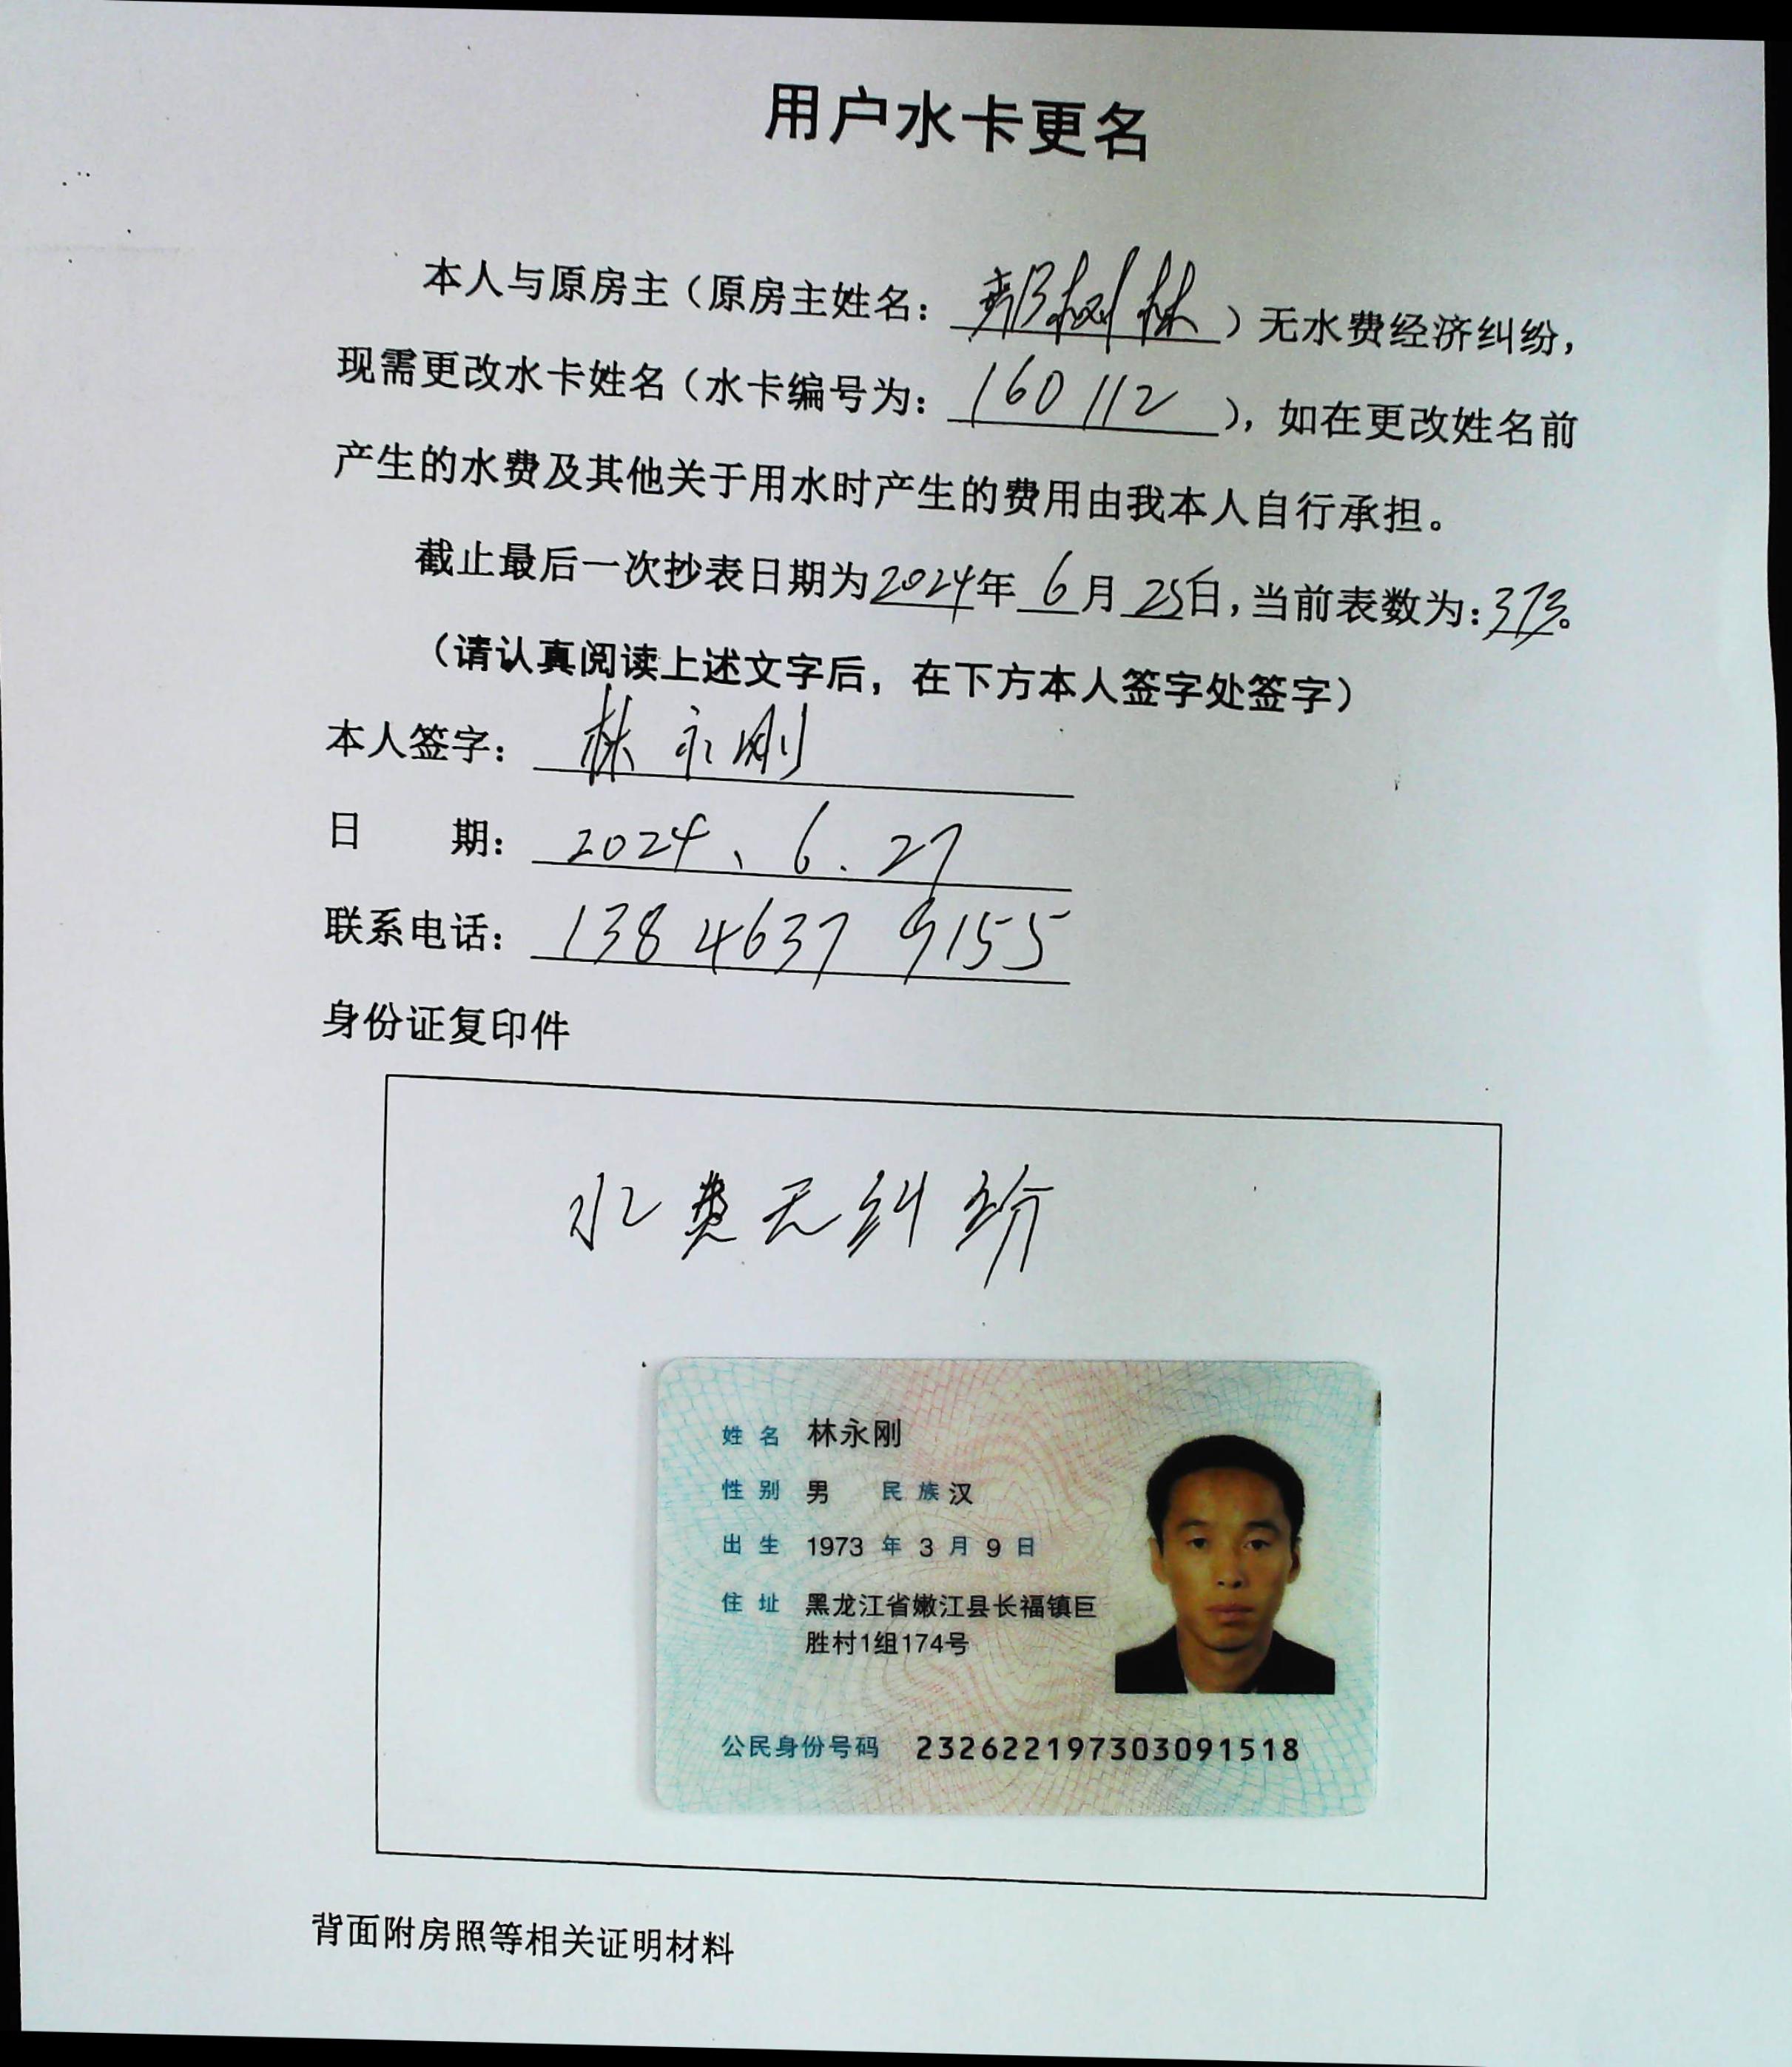 用户水卡更名
本人与原房主（原房主姓名：树林）无水费经济纠纷，
现需更改水卡姓名（水卡编号为：160112），如在更改姓名前
产生的水费及其他关于用水时产生的费用由我本人自行承担。
截止最后一次抄表日期为2024年6月25日，当前表数为：373。
（请认真阅读上述文字后，在下方本人签字处签字）
本人签字：林永刚
日 期：2024、6.27
联系电话：138 4637 9155
身份证复印件
水费无纠纷
姓名 林永刚
性别 男 民族 汉
出生 1973 年 3 月 9 日
住址 黑龙江省嫩江县长福镇巨
胜村1组174号
公民身份号码 232622197303091518
背面附房照等相关证明材料